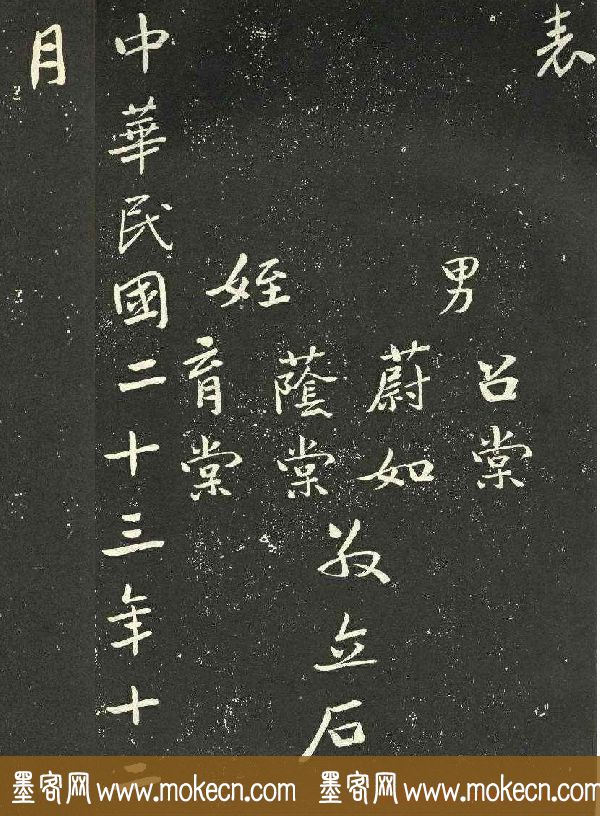 表
男
召棠
蔚如
姪
蔭棠
育棠
敬立石
中華民國二十三年十二
月
墨客网 www.mokecn.com 墨客网 www.mokecn.com